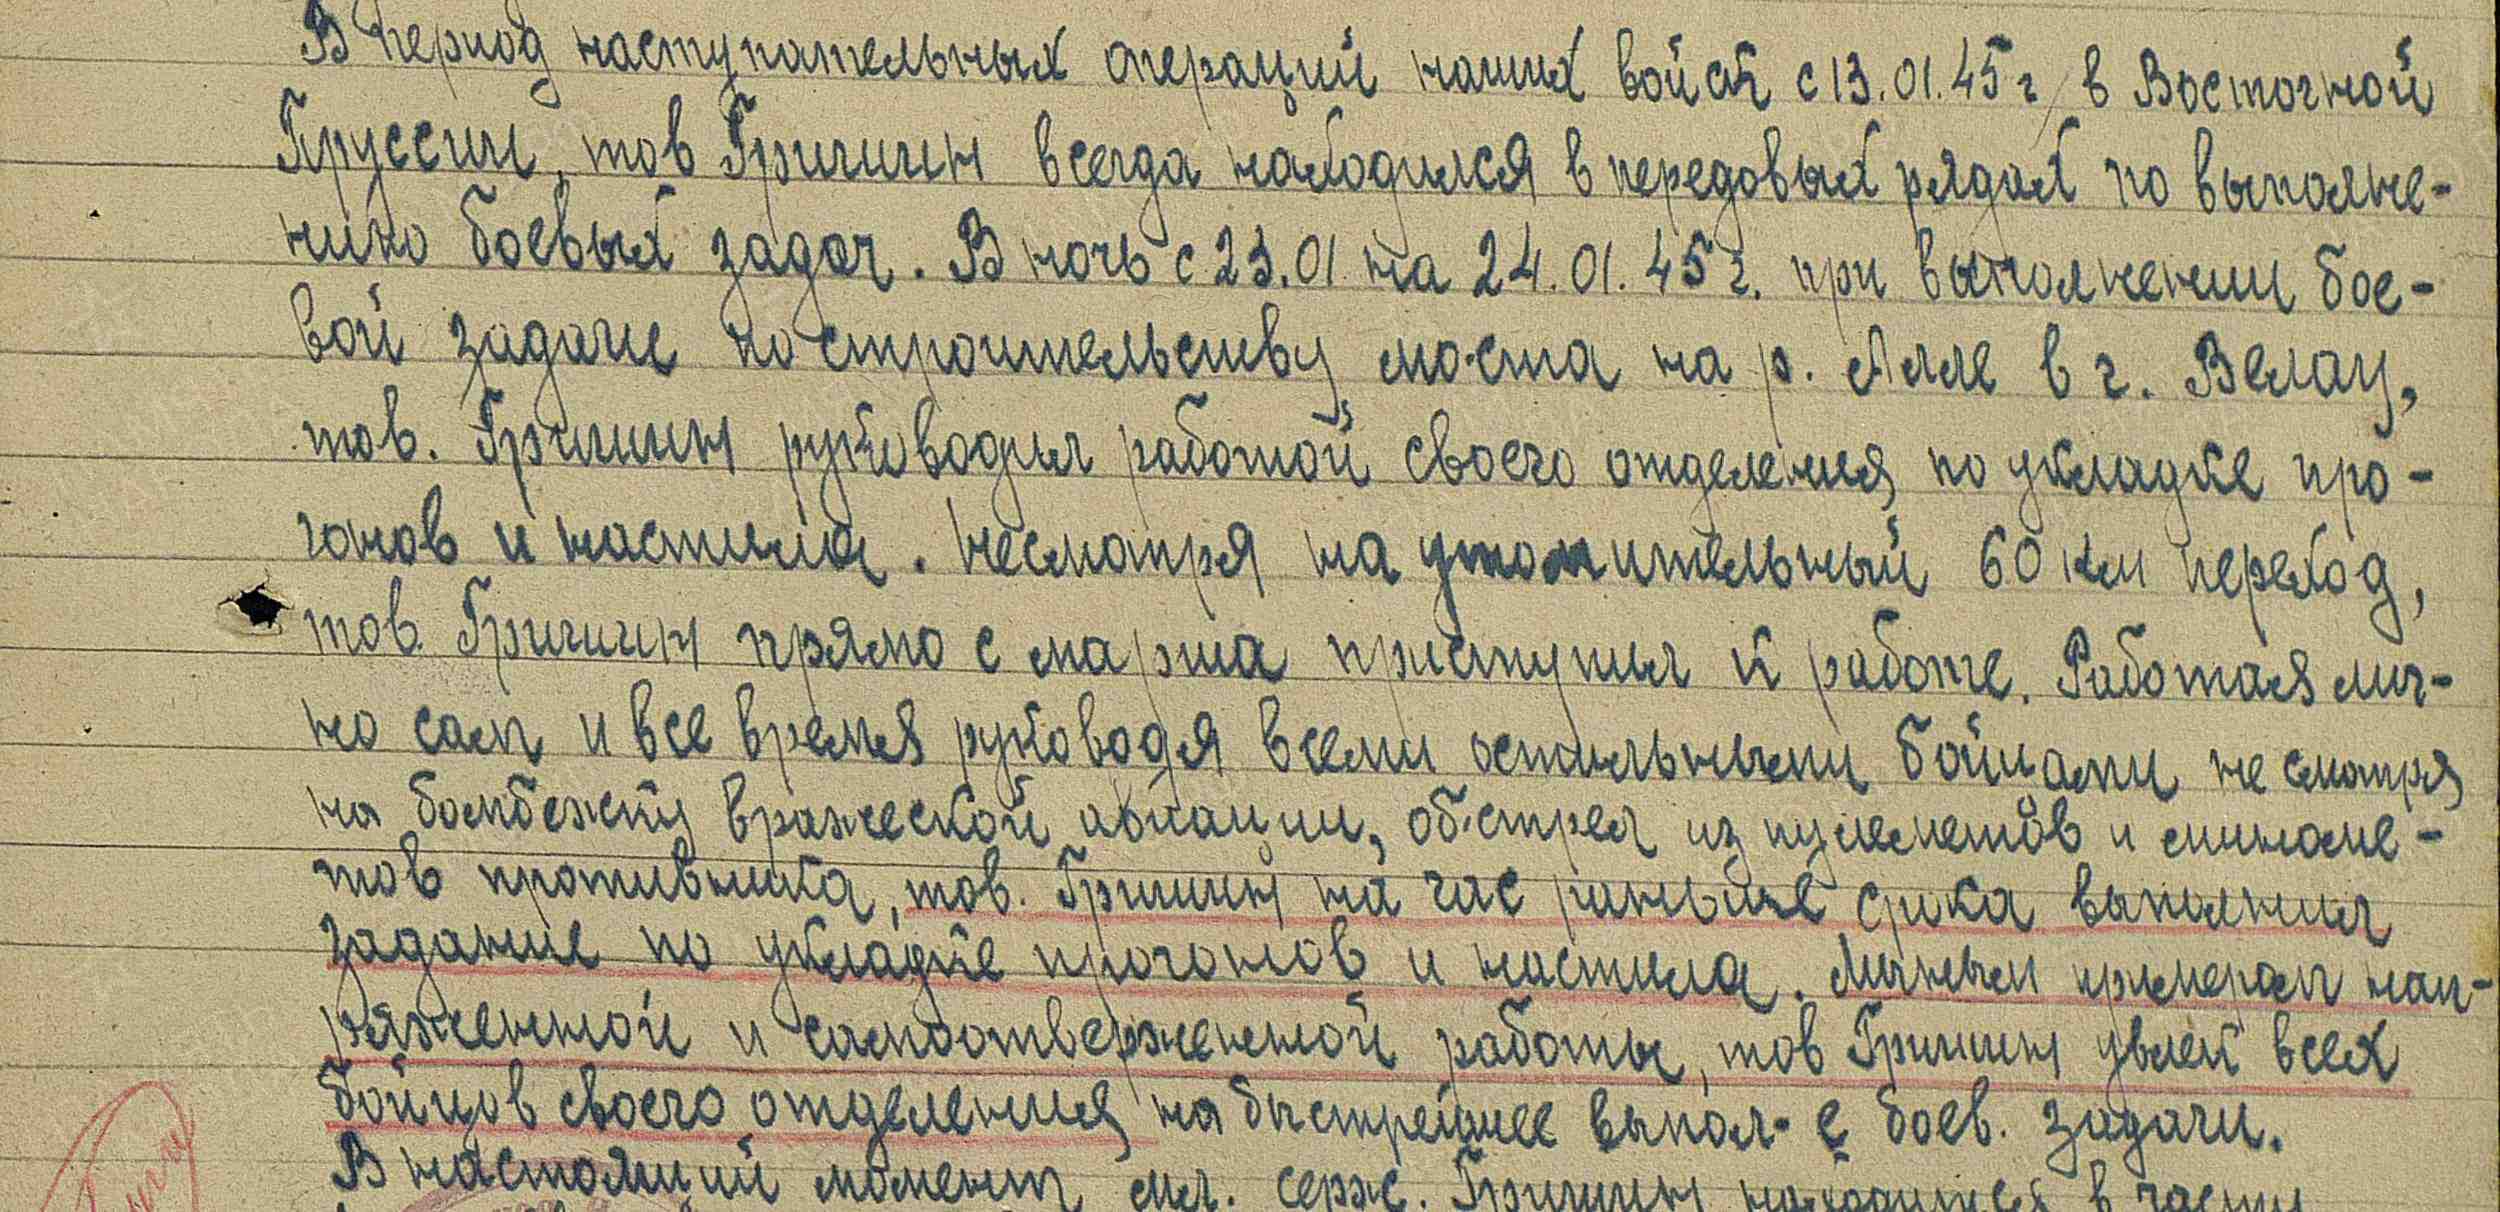 В период наступательных операций наших войск с 13.01.45 г в Восточной
Пруссии, тов Гришин всегда находился в передовых рядах по выполне-
нию боевых задач. В ночь с 23.01 на 24.01.45 г. при выполнении бое-
вой задачи по строительству моста на р. Алле в г. Велау,
тов. Гришин руководил работой своего отделения по укладке про-
гонов и настила. Несмотря на утомительный 60 км переход,
тов. Гришин прямо с марша приступил к работе. Работая лич-
но сам и все время руководя всеми остальными бойцами не смотря
на бомбежку вражеской авиации, обстрел из пулеметов и миноме-
тов противника, тов. Гришин на час раньше срока выполнил
задание по укладке прогонов и настила. Личным примерам нап-
ряженной и самоотверженной работы, тов Гришин увлек всех
бойцов своего отделения на быстрейшее выпол-е боев. задачи.
В настоящий момент мл. серж. Гришин находится в части